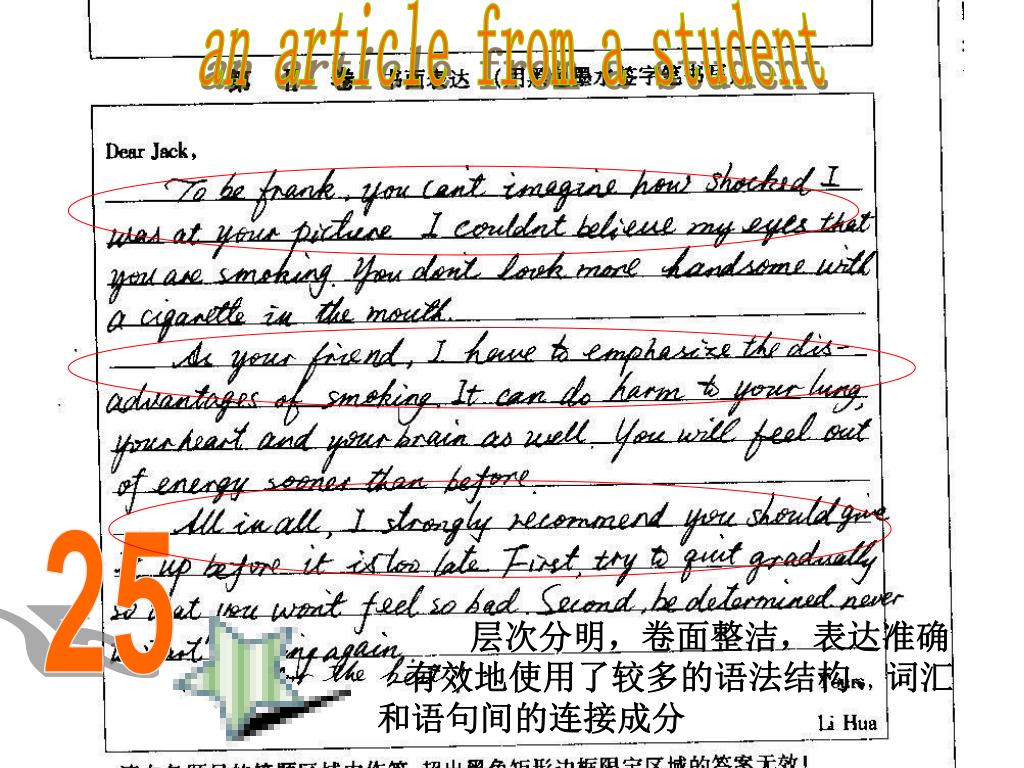 an article from a student
第 卷 书面表达
Dear Jack,
To be frank, you can't imagine how shocked I
was at your picture I couldn't believe my eyes that
you are smoking. You don't look more handsome with
a cigarette in the mouth.
As your friend, I have to emphasize the dis-
advantages of smoking. It can do harm to your lung,
your heart and your brain as well. You will feel out
of energy sooner than before.
All in all, I strongly recommend you should give
up before it is too late. First, try to quit gradually
so that you won't feel so bad. Second, be determined. never
again.
the best
25
层次分明，卷面整洁，表达准确
有效地使用了较多的语法结构、词汇
和语句间的连接成分
Yours,
Li Hua
超出黑色矩形边框限定区域的答案无效！